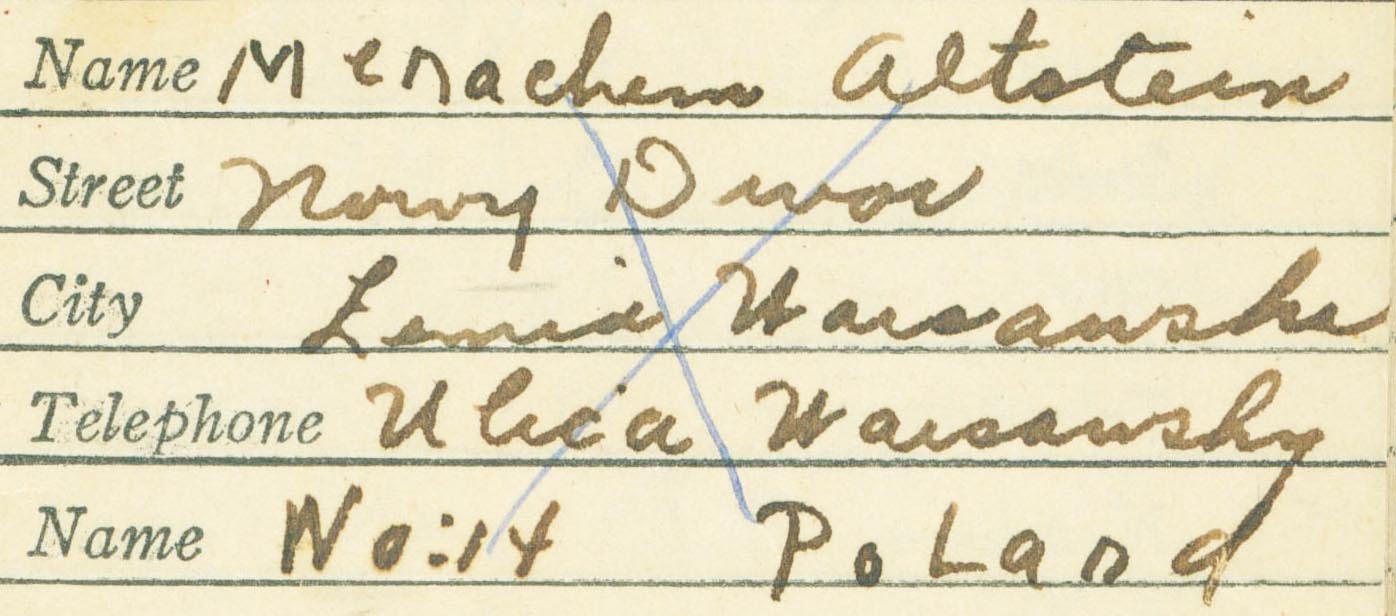 Name Menachem Altstein
Street Nowy Dwor
City Zemia Warsawska
Telephone Ulica Warsawsky
Name No:14 Poland